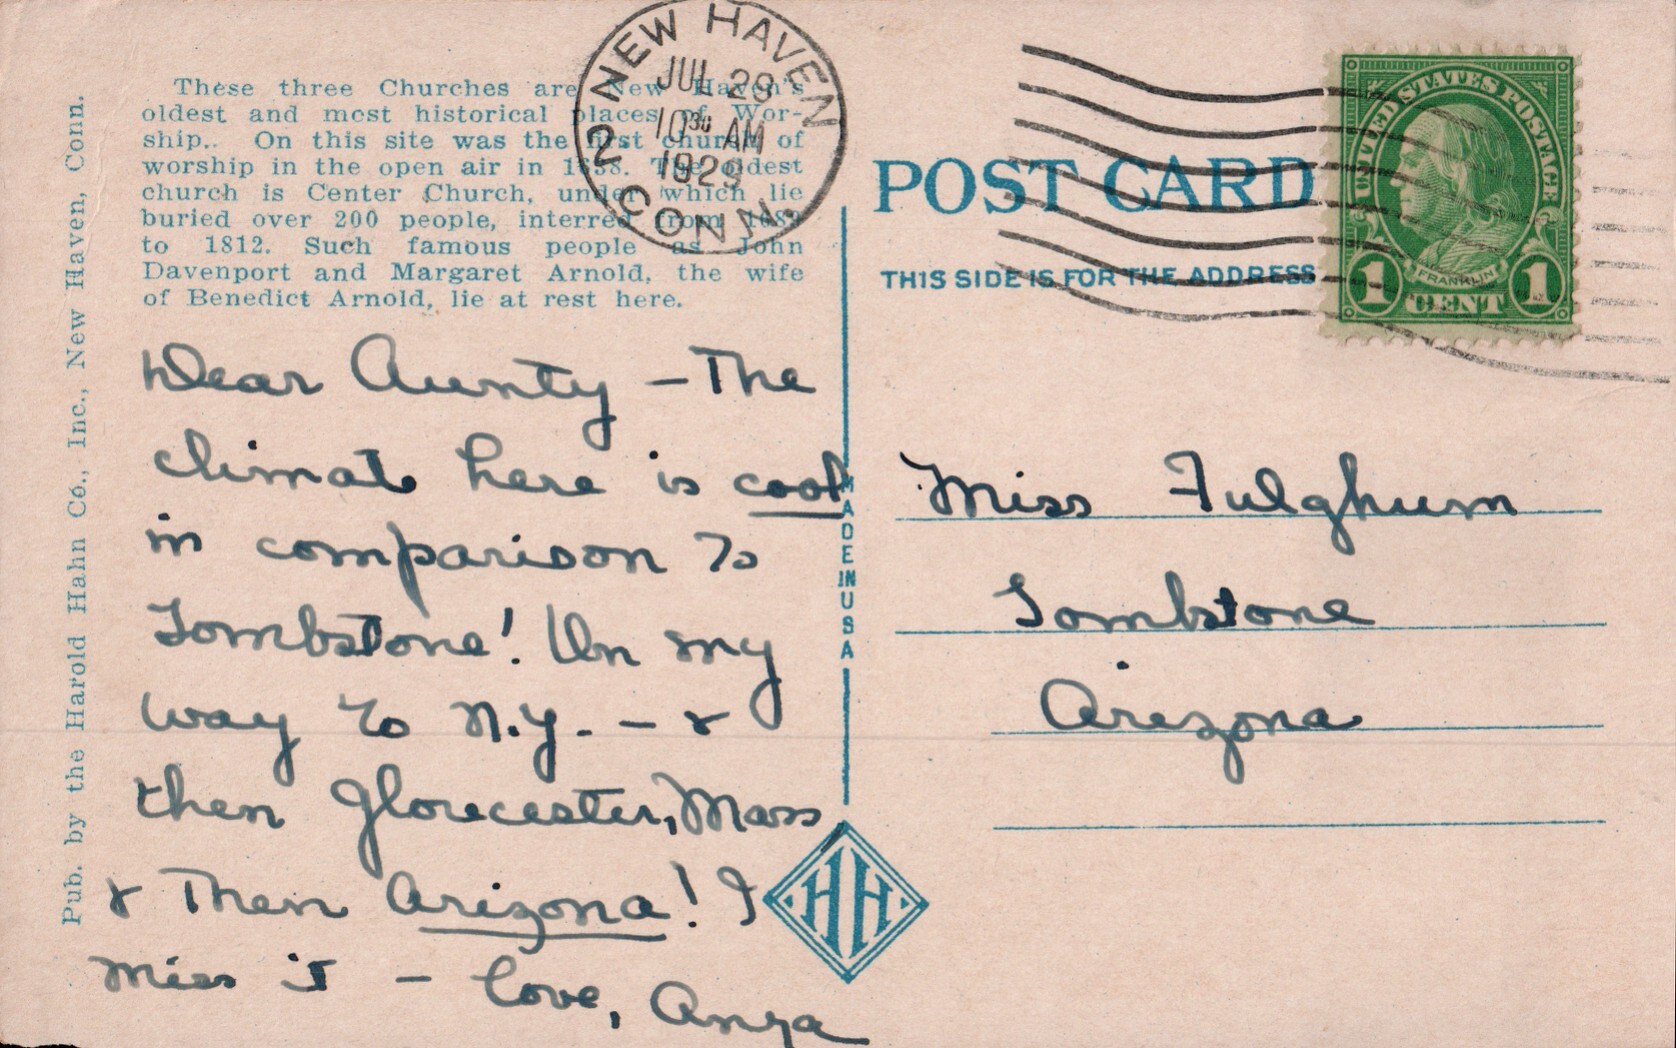 These three Churches are New Haven's
oldest and most historical places of Wor-
ship.. On this site was the first church of
worship in the open air in 1638. The oldest
church is Center Church, under which lie
buried over 200 people, interred from
to 1812. Such famous people as John
Davenport and Margaret Arnold, the wife
of Benedict Arnold, lie at rest here.
Pub. by the Harold Hahn Co., Inc., New Haven, Conn.
NEW HAVEN
JUL 29
10 30 AM
1929
2
CONN.
Dear Aunty — The
climate here is cool
in comparison to
Tombstone! On my
way to N.Y. — &
then Glorecester, Mass
& Then Arizona! I
Miss it — Love, Anza
MADE IN USA
HH
POST CARD
THIS SIDE IS FOR THE ADDRESS
UNITED STATES POSTAGE
FRANKLIN
1 CENT 1
Miss Fulghum
Tombstone
Arizona